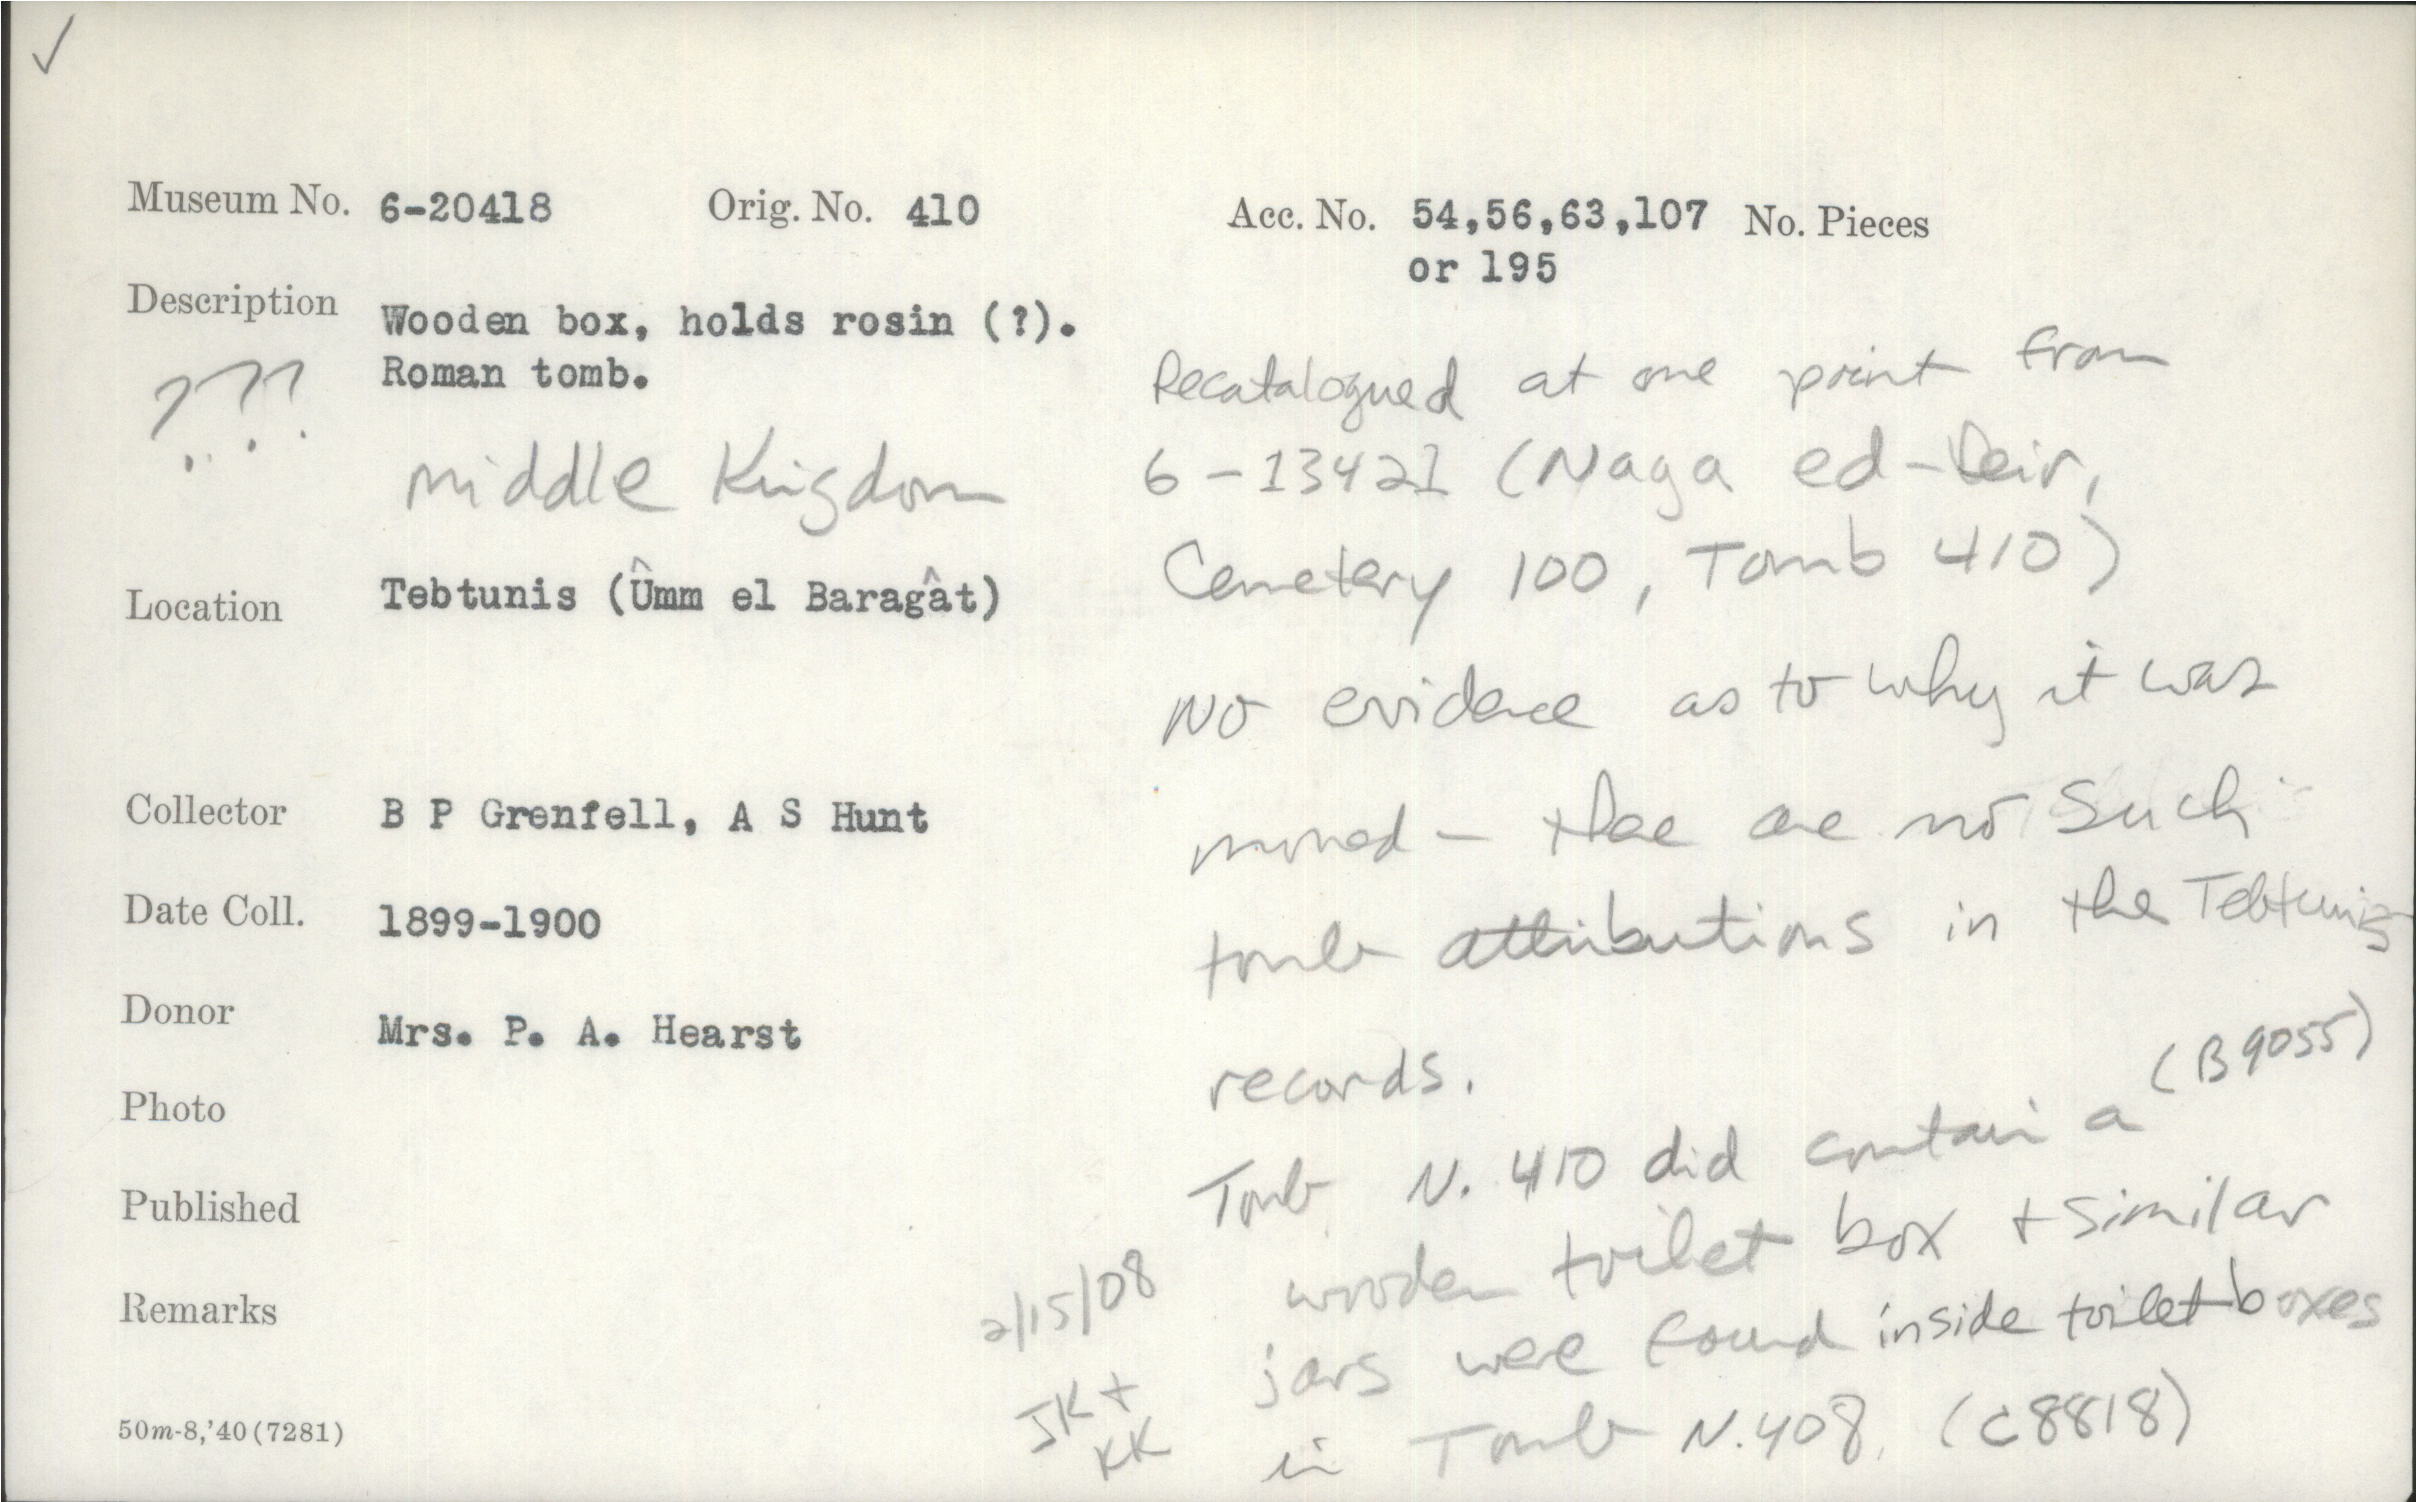 ✓
Museum No. 6-20418 Orig. No. 410 Acc. No. 54,56,63,107 No. Pieces
or 195
Description Wooden box, holds rosin (?).
Roman tomb.
???
Middle Kingdom
Location Tebtunis (Ûmm el Baragât)
Collector B P Grenfell, A S Hunt
Date Coll. 1899-1900
Donor Mrs. P. A. Hearst
Photo
Published
Remarks
50m-8,'40(7281)
Recatalogued at one point from
6-13421 (Naga ed-Deir,
Cemetery 100, Tomb 410)
No evidence as to why it was
moved - there are no such
tomb attributions in the Tebtunis
records.
Tomb N. 410 did contain a (B9055)
wooden toilet box + similar
jars were found inside toilet boxes
in Tomb N.408. (C8818)
2/15/08
JK +
KK